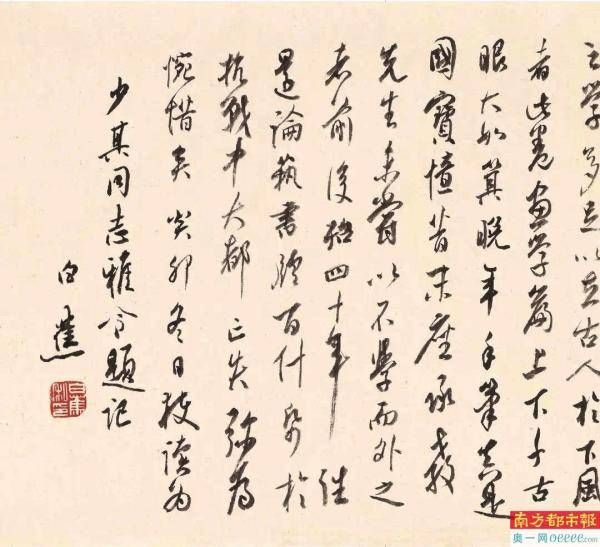 學多足以古人於下風
者此卷畫學篇上下千古
眼大如箕晚年手筆真是
國寶憶昔末座承教
先生未嘗以不學而外之
者前後四十年往
還論藝書牘百什於
抗戰中大都亡失弥為
惋惜矣癸卯冬日校讀為
少其同志雅令題記
白蕉
南方都市報
奥一网oeeee.com